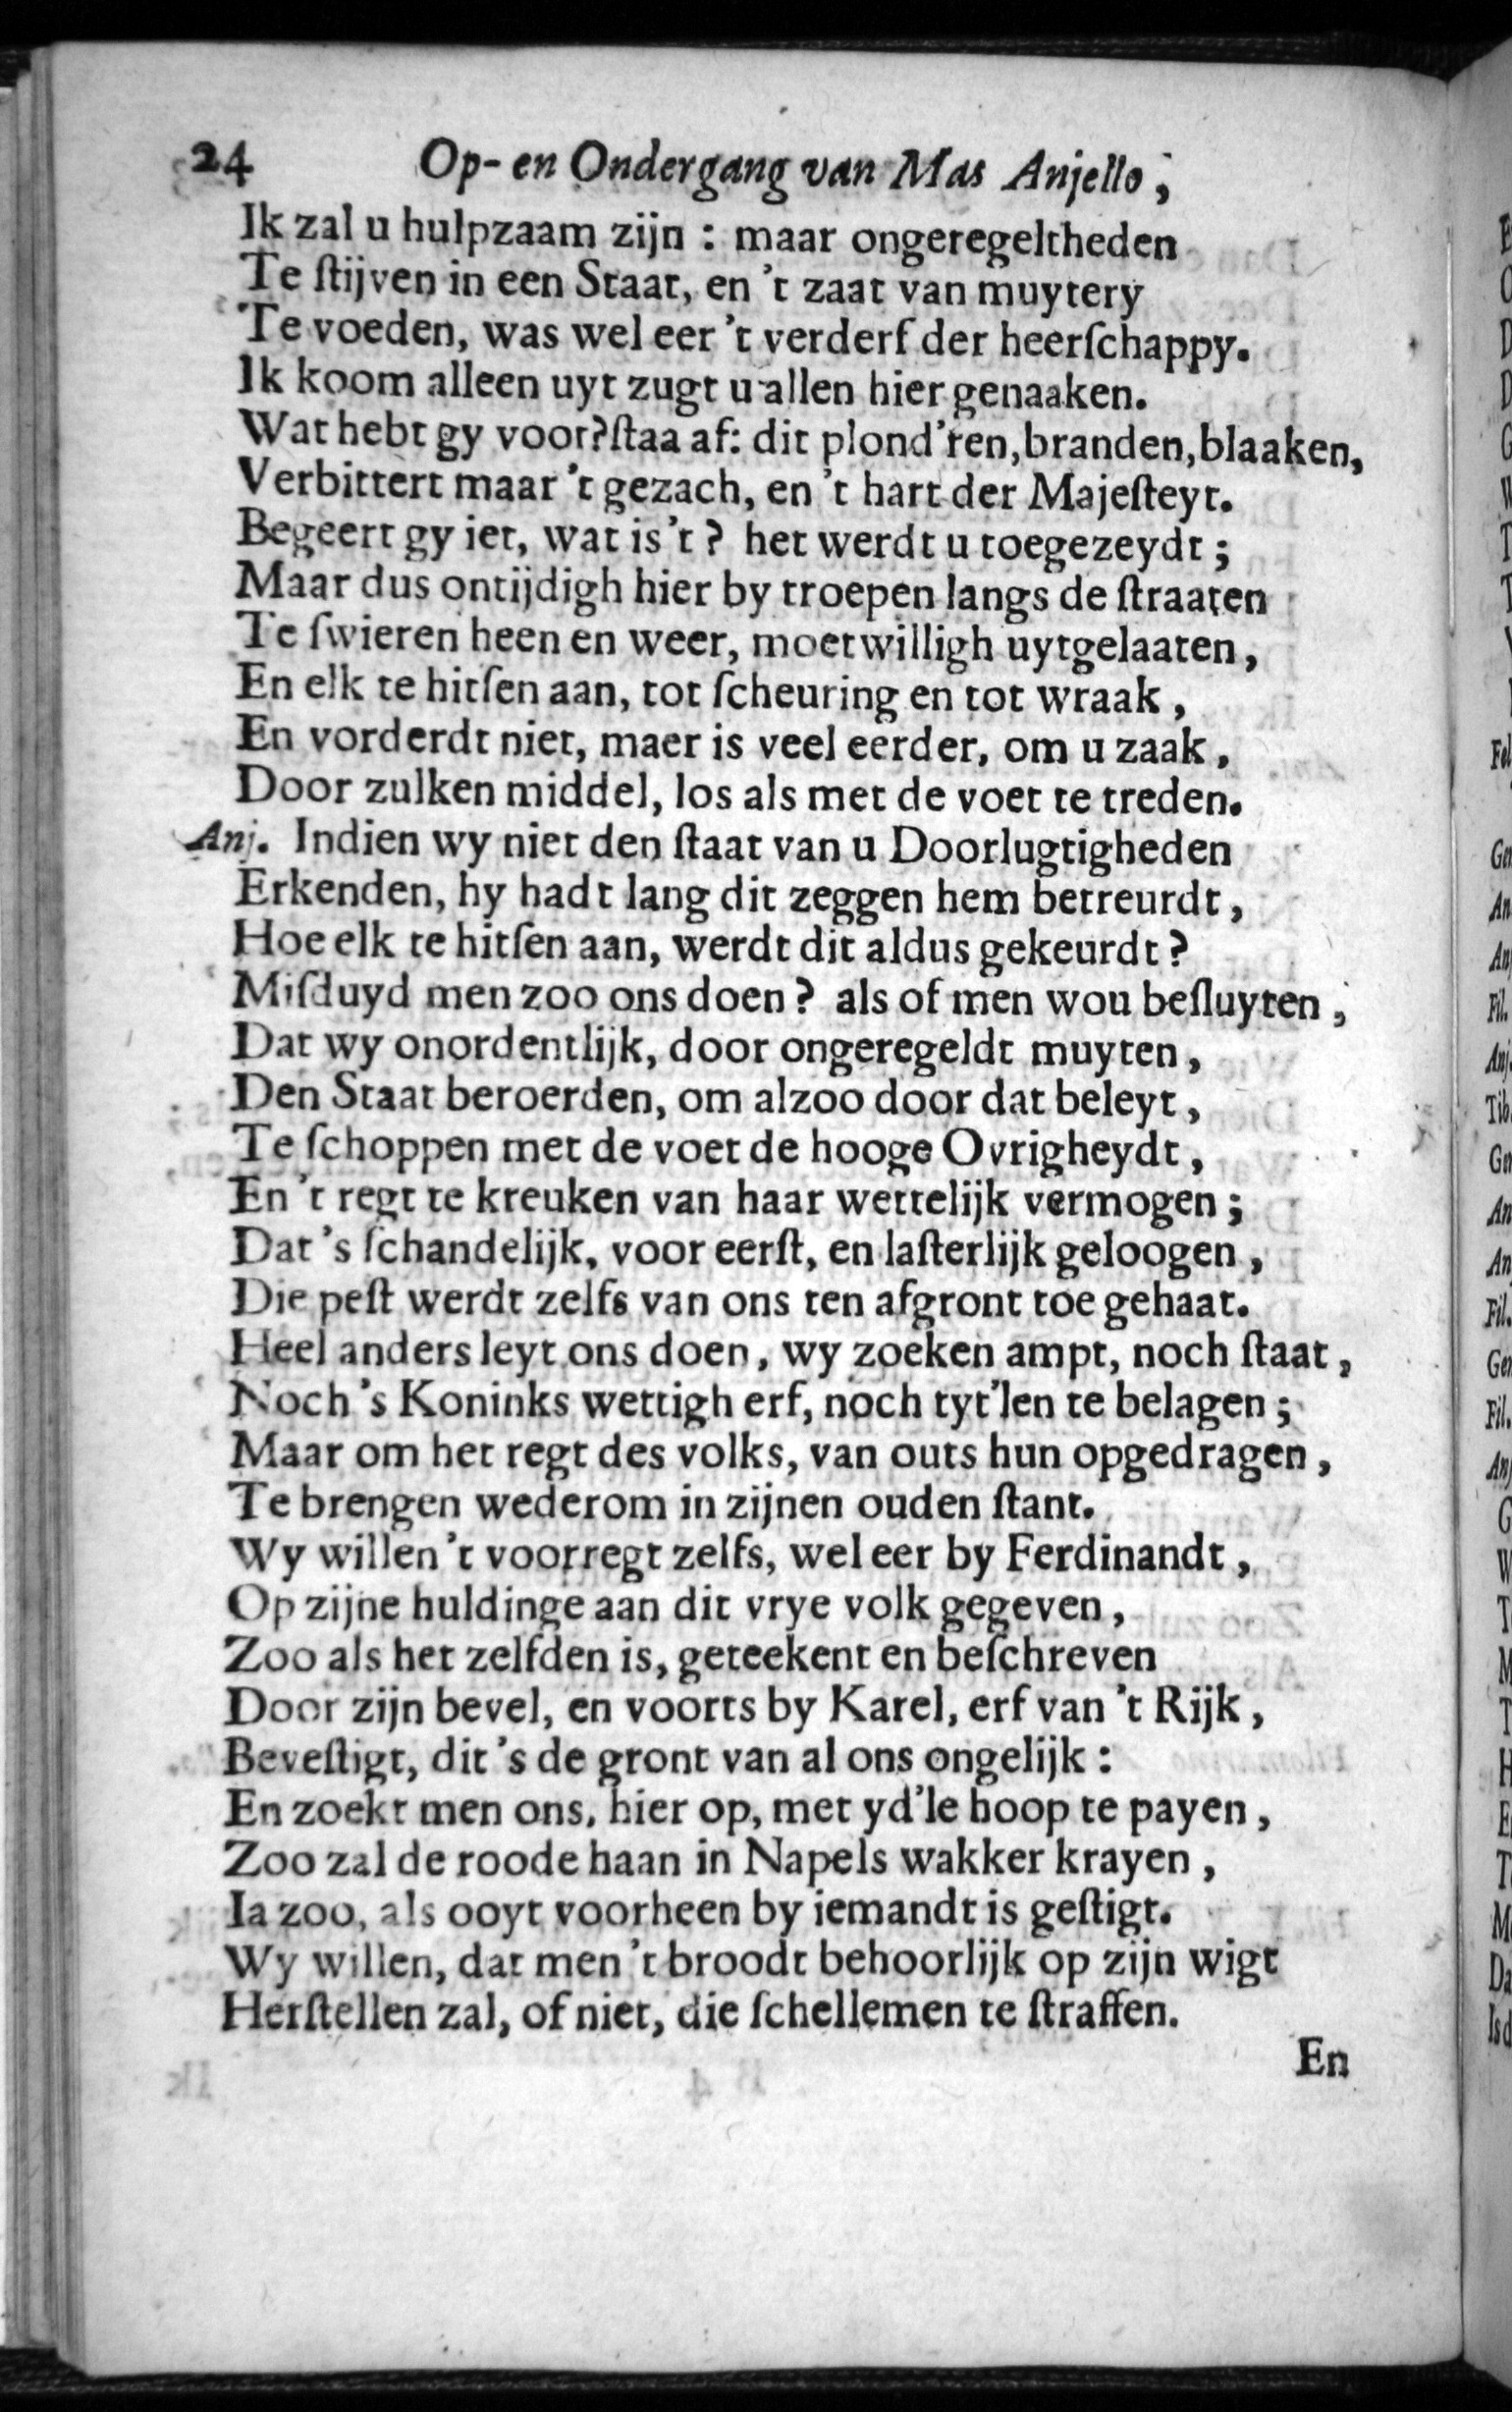 24 Op- en Ondergang van Mas Anjello,
Ik zal u hulpzaam zijn : maar ongeregeltheden
Te ſtijven in een Staat, en 't zaat van muytery
Te voeden, was wel eer 't verderf der heerſchappy.
Ik koom alleen uyt zugt u allen hier genaaken.
Wat hebt gy voor? ſtaa af: dit plond'ren, branden, blaaken,
Verbittert maar 't gezach, en 't hart der Majeſteyt.
Begeert gy iet, wat is 't ? het werdt u toegezeydt ;
Maar dus ontijdigh hier by troepen langs de ſtraaten
Te ſwieren heen en weer, moetwilligh uytgelaaten,
En elk te hitſen aan, tot ſcheuring en tot wraak,
En vorderdt niet, maer is veel eerder, om u zaak,
Door zulken middel, los als met de voet te treden.
Anj. Indien wy niet den ſtaat van u Doorlugtigheden
Erkenden, hy hadt lang dit zeggen hem betreurdt,
Hoe elk te hitſen aan, werdt dit aldus gekeurdt ?
Miſduyd men zoo ons doen ? als of men wou beſluyten,
Dat wy onordentlijk, door ongeregeldt muyten,
Den Staat beroerden, om alzoo door dat beleyt,
Te ſchoppen met de voet de hooge Ovrigheydt,
En 't regt te kreuken van haar wettelijk vermogen ;
Dat 's ſchandelijk, voor eerſt, en laſterlijk geloogen,
Die peſt werdt zelfs van ons ten afgront toe gehaat.
Heel anders leyt ons doen, wy zoeken ampt, noch ſtaat,
Noch 's Koninks wettigh erf, noch tyt'len te belagen ;
Maar om het regt des volks, van outs hun opgedragen,
Te brengen wederom in zijnen ouden ſtant.
Wy willen 't voorregt zelfs, wel eer by Ferdinandt,
Op zijne huldinge aan dit vrye volk gegeven,
Zoo als het zelfden is, geteekent en beſchreven
Door zijn bevel, en voorts by Karel, erf van 't Rijk,
Beveſtigt, dit 's de gront van al ons ongelijk :
En zoekt men ons, hier op, met yd'le hoop te payen,
Zoo zal de roode haan in Napels wakker krayen,
Ia zoo, als ooyt voorheen by iemandt is geſtigt.
Wy willen, dat men 't broodt behoorlijk op zijn wigt
Herſtellen zal, of niet, die ſchellemen te ſtraffen.
En